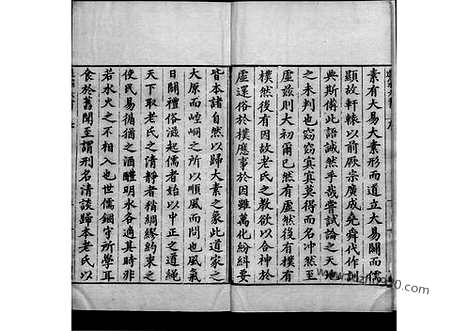 素有大易大素形而道立大易闢而儒
顯故軒轅以前厥宗廣成堯舜代作訓
典斯備此語誠然乎哉嘗試論之天地
之未判也窈窈寞寞莫得而名冲然至
虛茲則大初爾已然有虛然後有樸有
樸然後有因故老氏之教欲以合神於
虛還俗於樸應事於因雖萬化紛糾要
皆本諸自然以歸大素之象此道家之
大原而崆峒之所以順風而問也風氣
日闢禮俗滋起儒者始以中正之道繩
天下取老氏之清靜者稍綢繆約束之
使民易循猶之酒醴明水各適其時非
若水火之不相入也世儒錮守所學耳
食於舊聞至謂刑名清談歸本老氏以